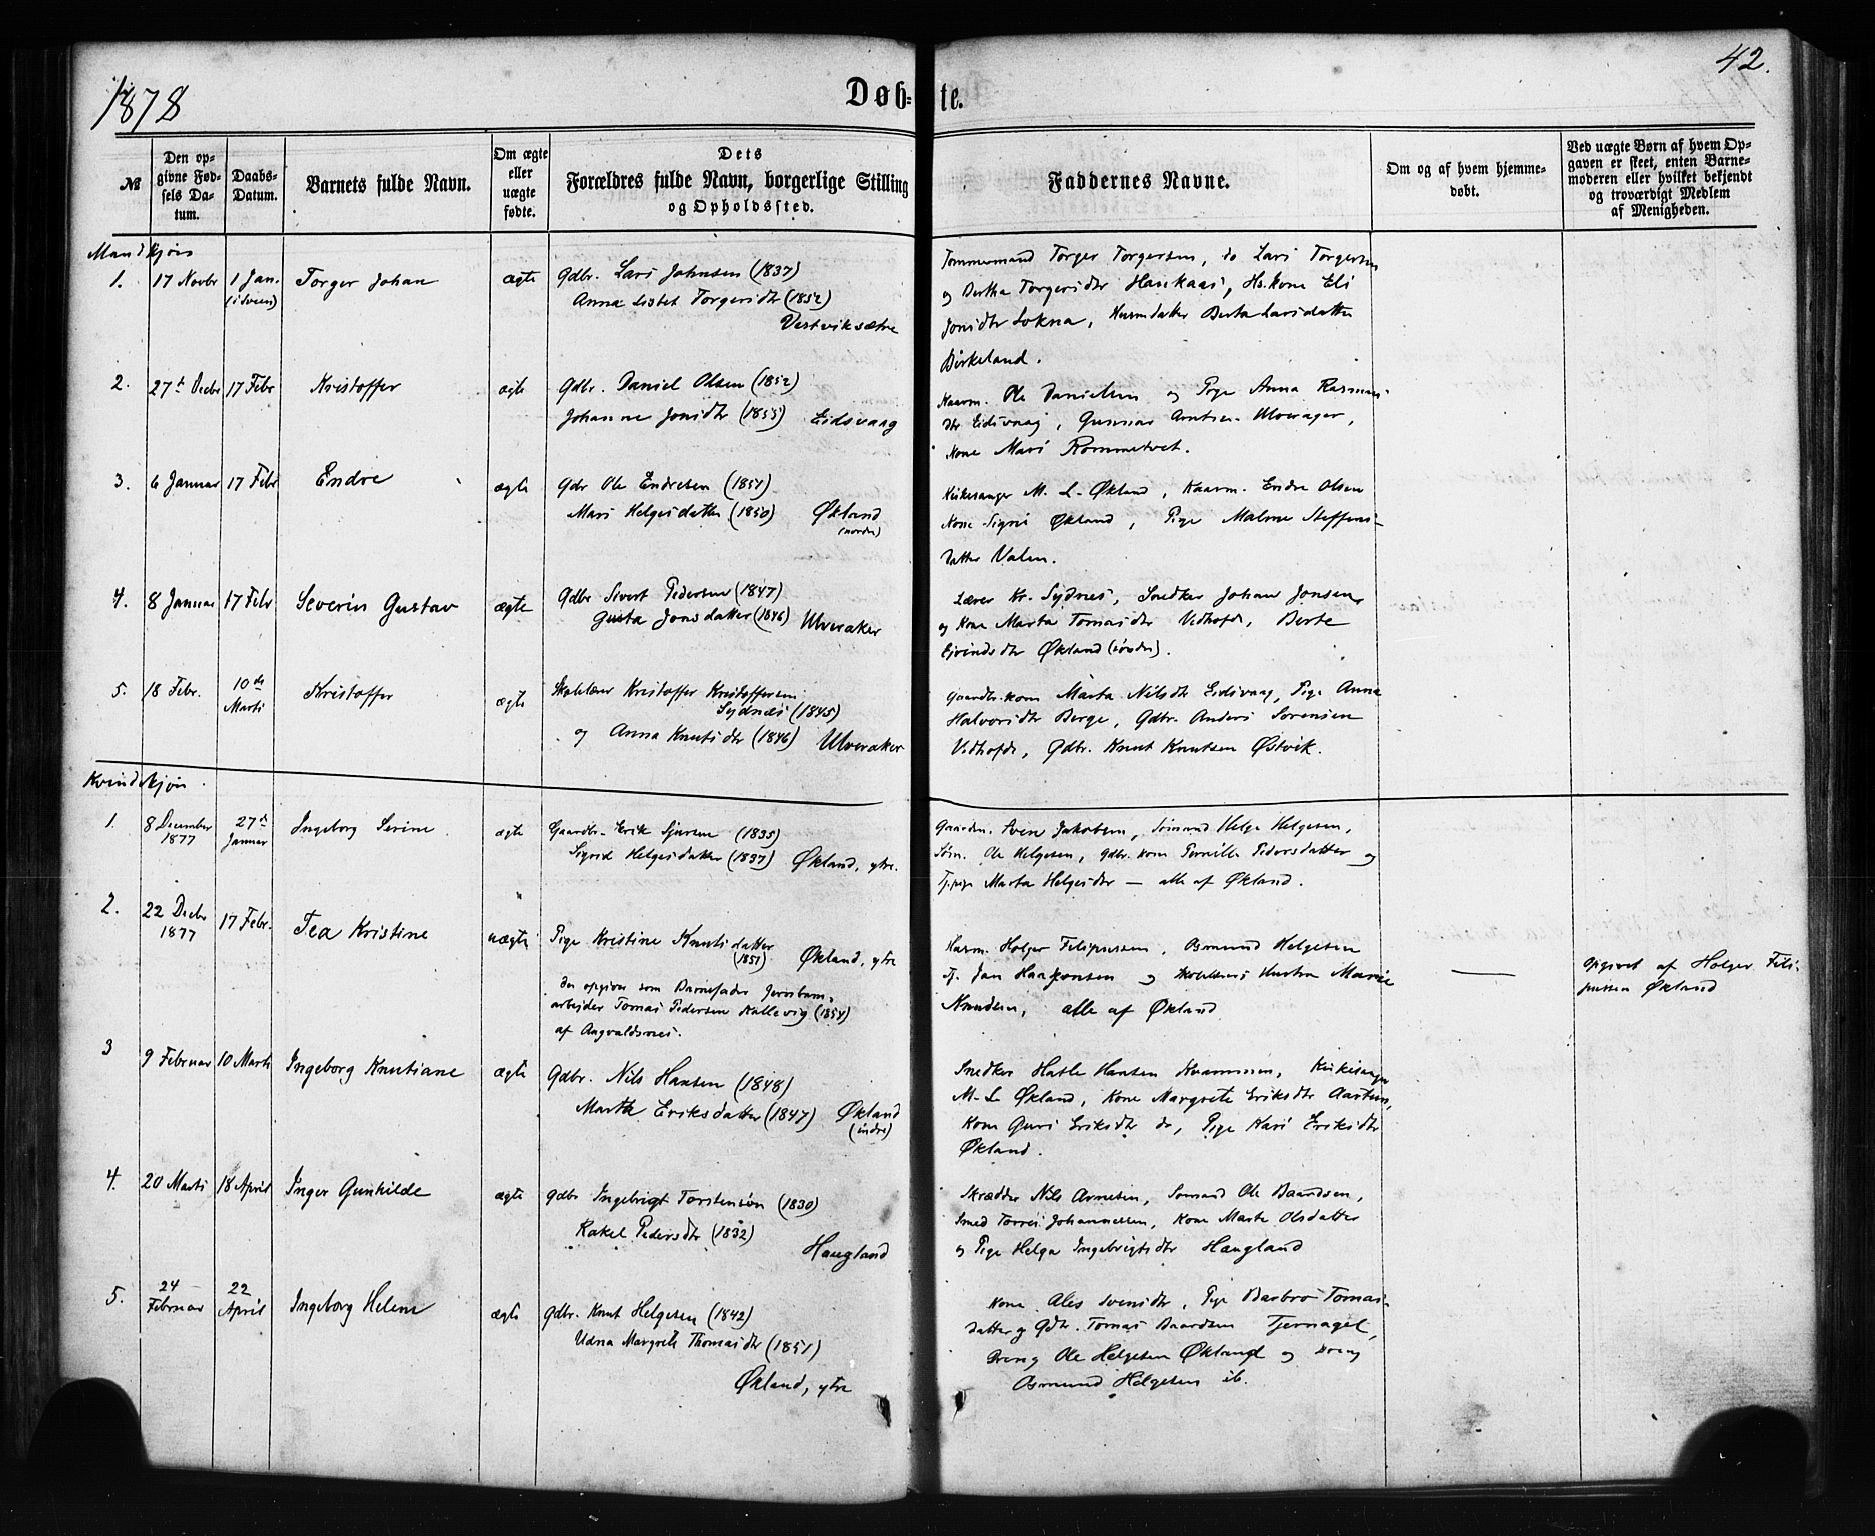 1878
Døb=te.
42.
№
Den op-
givne Fød-
sels Da-
tum.
Daabs-
Datum.
Barnets fulde Navn.
Om ægte
eller
uægte
fødte.
Dets
Forældres fulde Navn, borgerlige Stilling
og Opholdssted.
Faddernes Navne.
Om og af hvem hjemme-
døbt.
Ved uægte Børn af hvem Op-
gaven er skeet, enten Barne-
moderen eller hvilket bekjendt
og troværdigt Medlem
af Menigheden.
Mandkjøn
1. 17 Novbr 1 Jan. Torger Johan ægte Gdbr. Lars Johnsen (1837)
Anna Lisbet Torgersdtr (1852)
Vestviksætre
Tømmermand Torger Torgersen, do Lars Torgersen
og Bertha Torgersdtr Haukaas, Hs.kone Eli
Jonsdtr Lokna, Berta Larsdatter
Birkeland.
2. 27de Decbr 17 Febr Kristoffer ægte Gdbr. Daniel Olsen (1852)
Johanne Jonsdtr (1855) Eidsvaag
Kaarm. Ole Danielsen og Pige Anna Rasmus-
dtr Eidsvaag, Gunnar Arntsen Ulverager,
Kone Mari Rommetvet.
3. 6 Januar 17 Febr Endre ægte Gdbr Ole Endresen (1851)
Mari Helgesdatter (1850) Økland
(nordre)
Kirkesanger M. L. Økland, Kaarm. Endre Olsen
Kone Signi Økland, Pige Malene Steffens-
datter Valen.
4. 8 Januar 17 Febr Severin Gustav ægte Gdbr Sivert Pedersen (1847)
Gusta Jonsdatter (1846) Ulveraker
Lærer Kr. Sydnes, Snedker Johan Jonsen,
og Kone Marta Tomasdtr Vedhofde, Berte
Eivindsdtr Økland (søndre).
5. 18 Febr. 10de
Marts
Kristoffer ægte Skolelærer Kristoffer Kristoffersen
Sydnæs (1845)
og Anna Knutsdtr (1846) Ulveraker
Gaardbr.kone Marta Nilsdtr Eidsvaag, Pige Anna
Halvorsdtr Berge, Gdbr. Anders Sørensen
Vedhofde, Gdbr. Knut Knutsen Østvik.
Kvindekjøn.
1. 8 December
1877
27de
Januar
Ingeborg Serine ægte Gaardbr. Erik Sjursen (1835)
Sigrid Helgesdatter (1837) Økland, ytre.
Gaardm. Aven Jakobsen, Sømand Helge Helgesen,
Søm. Ole Helgesen, Gdbr. kone Pernille Pedersdatter og
Tj.pige Marta Helgesdtr — alle af Økland.
2. 22 Decbr
1877
17 Febr. Tea Kristine uægte Pige Kristine Knutsdatter
(1851) Økland, ytre
der opgiver som Barnefader Jernbane-
arbejder Tomas Pedersen Kallevig (1854)
af Augvaldsnes.
Kaarm. Holger Filipussen, Asmund Helgesen
Jan Haakonsen og Skolelærers Hustru Marie
Knudsen, alle af Økland
—
opgivet af Holger Fili-
pussen Økland
3 9 Februar 10 Marts Ingeborg Knutiane ægte Gdbr. Nils Hansen (1848)
Marta Eriksdatter (1847) Økland
(indre)
Snedker Hatle Hansen Kvammen, Kirkesanger
M. L Økland, Kone Margrete Eriksdtr Aarhus,
Kone Guri Eriksdtr do, Pige Kari Eriksdtr
Økland.
4. 20 Marts 18 April Inger Gunhilde ægte Gdbr Ingebrigt Torstensøn (1830)
Rakel Pedersdtr (1832)
Haugland
Skrædder Nils Arnesen, Sømand Ole Baardsen,
Smed Torres Johannessen, Kone Marte Olsdatter
og Pige Helga Ingebrigtsdtr Haugland
5. 24
Februar
22
April
Ingeborg Helene ægte Gdbr. Knut Helgesen (1842)
Udna Margrete Thomasdtr (1851)
Økland, ytre
Kone Ales Svensdtr, Pige Barbro Tomas-
datter og Gdbr. Tomas Baardsen Tjernagel,
Dreng Ole Helgesen Økland og Dreng
Asmund Helgesen ib.